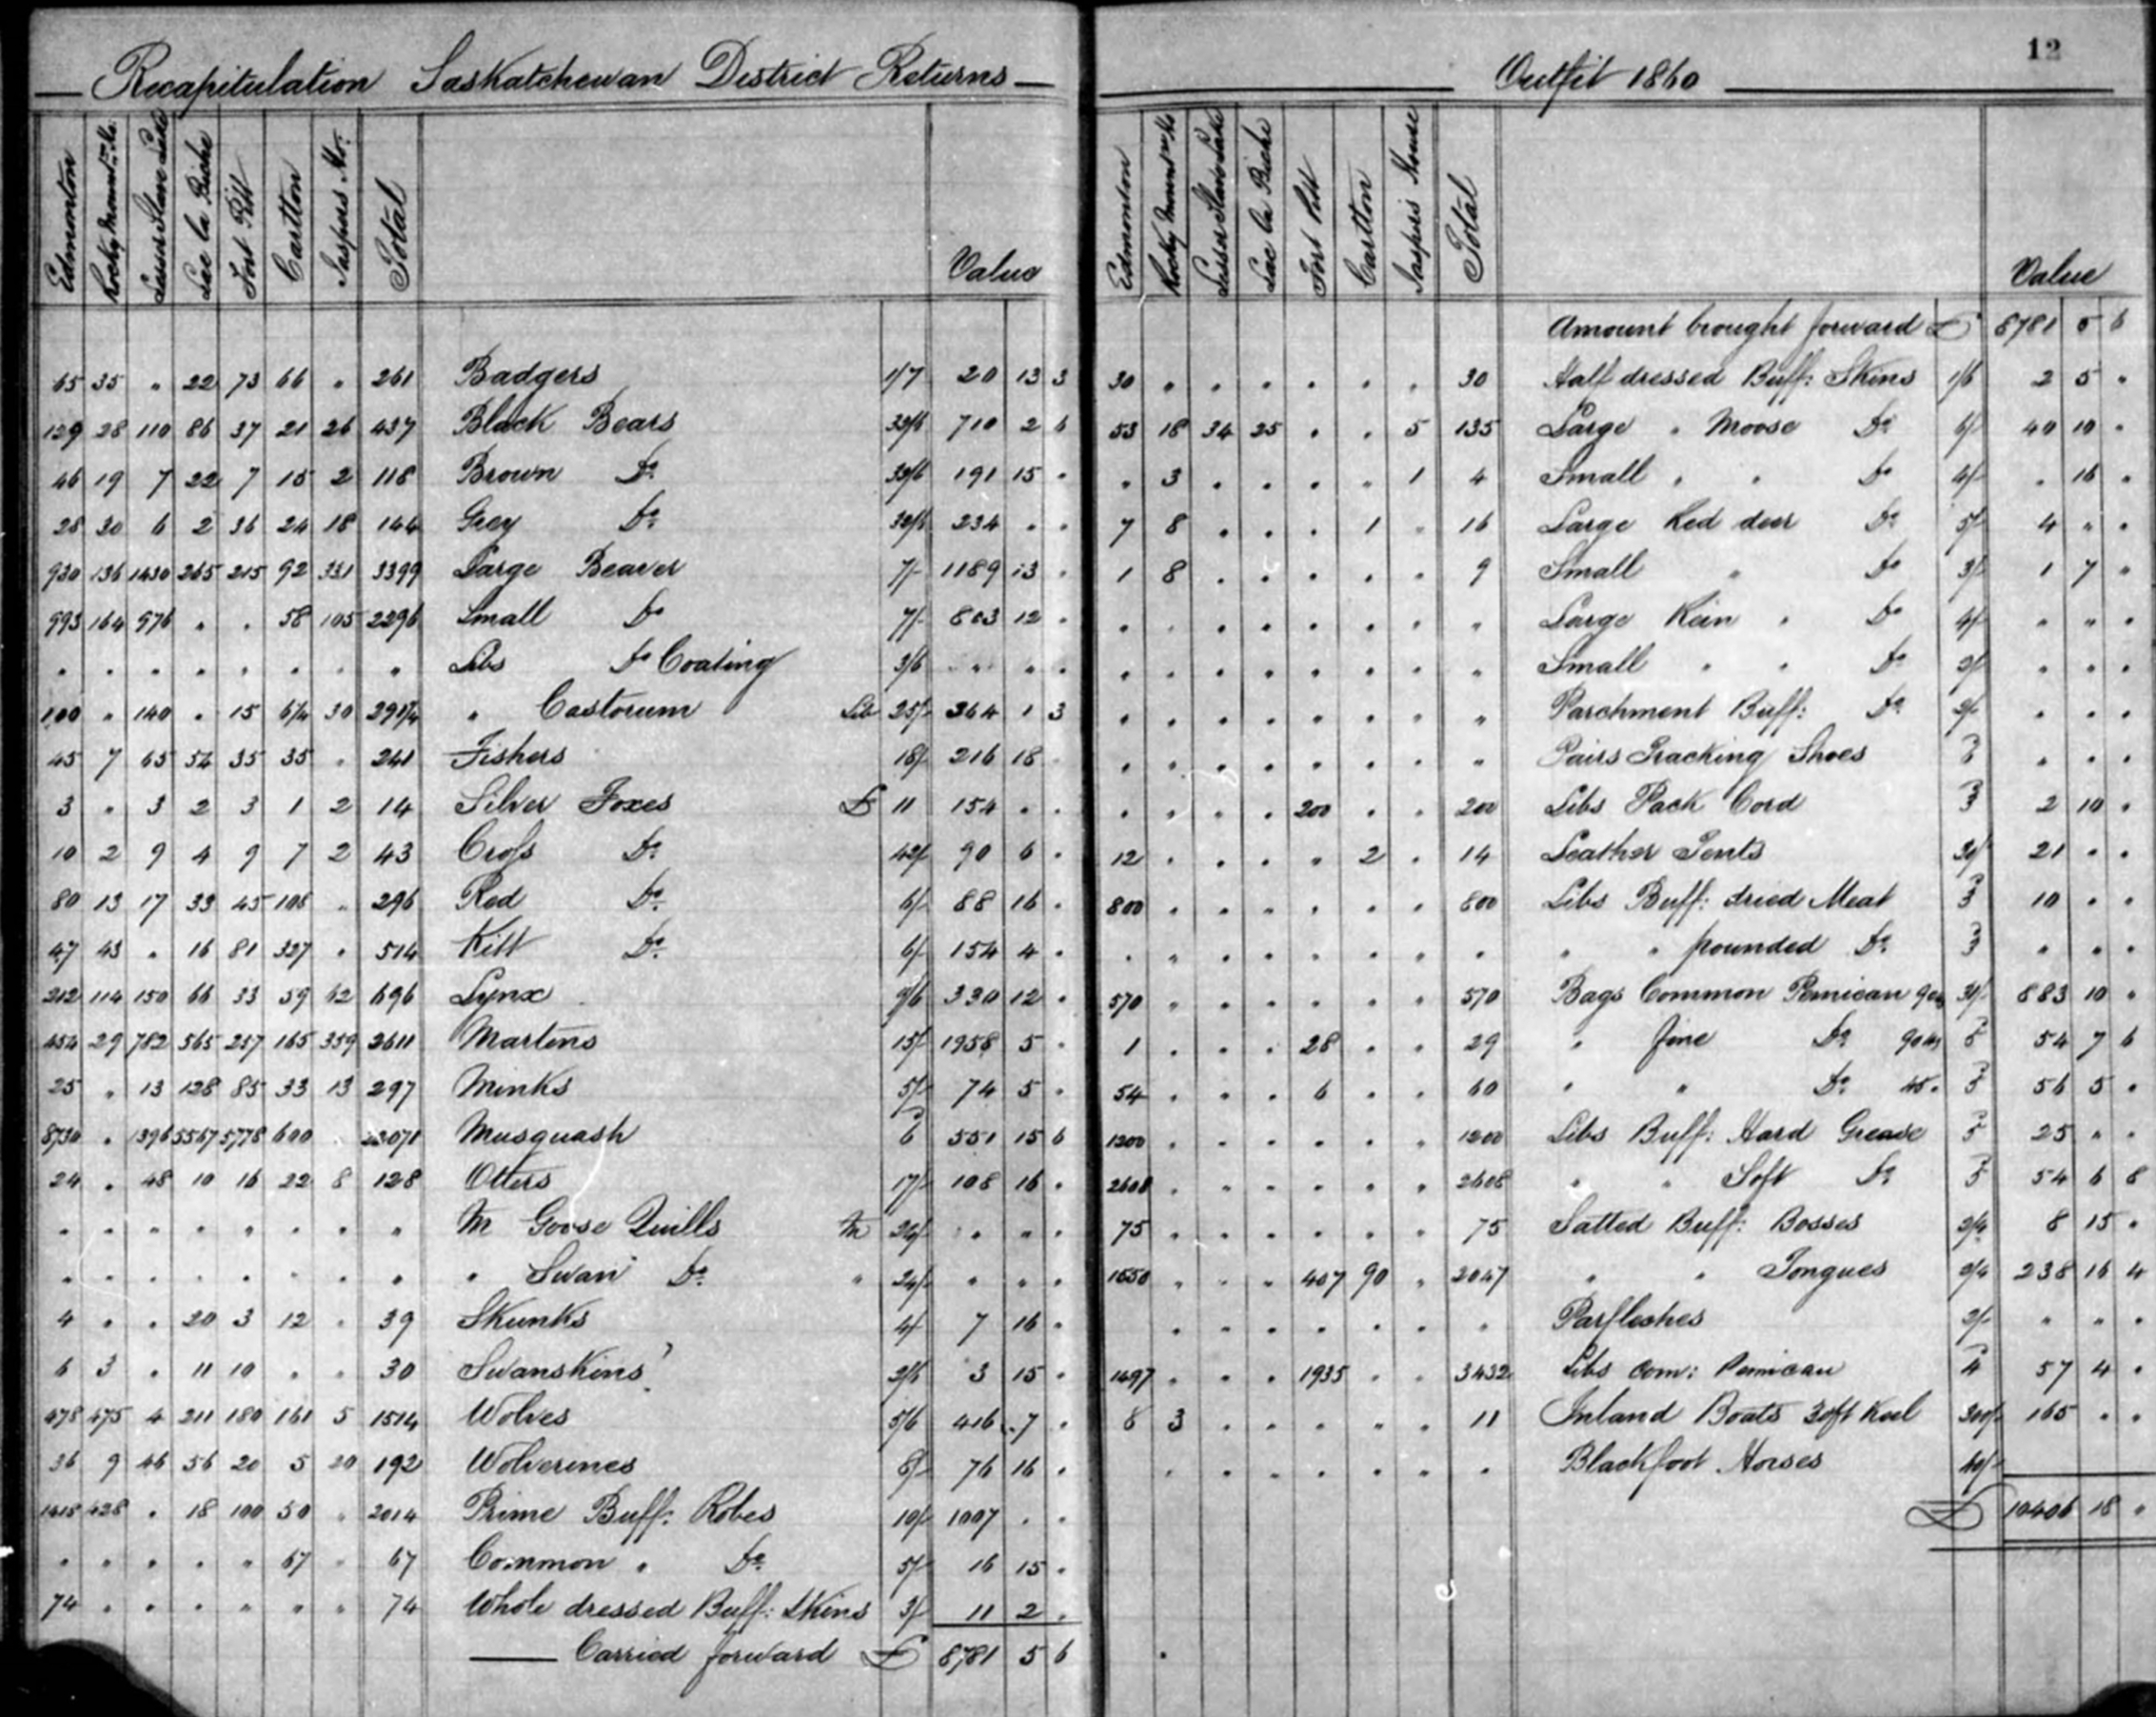 Recapitulation Saskatchewan District Returns
Edmonton Rocky Mount.n Ho. Lesser Slave Lake Lac la Biche Fort Pitt Carlton Jaspers Ho. Total Value
65 35 " 22 73 66 " 261 Badgers 1/7 20 13 3
129 28 110 86 37 21 26 437 Black Bears 32/6 710 2 6
46 19 7 22 7 15 2 118 Brown Do 32/6 191 15 "
28 30 6 2 36 24 18 144 Grey Do 32/6 234 " "
930 136 1430 265 215 92 331 3399 Large Beaver 7/- 1189 13 "
993 164 976 " " 58 105 2296 Small Do 7/- 803 12 "
" " " " " " " " Lbs Do Coating 3/6 " " "
100 " 140 " 15 6 1/4 30 291 1/4 " Castorum Lib 25/- 364 1 3
45 7 65 54 35 35 " 241 Fishers 18/- 216 18 "
3 " 3 2 3 1 2 14 Silver Foxes £ 11 154 " "
10 2 9 4 9 7 2 43 Cross Do 42/- 90 6 "
80 13 17 33 45 108 " 296 Red Do 6/- 88 16 "
47 43 " 16 81 327 " 514 Kitt Do 6/- 154 4 "
212 114 150 66 33 59 62 696 Lynx 9/6 330 12 "
454 29 782 565 257 165 359 2611 Martens 15/- 1958 5 "
25 " 13 128 85 33 13 297 Minks 5/- 74 5 "
8730 " 1396 5567 5778 600 " 22071 Musquash 6 551 15 6
24 " 48 10 16 22 8 128 Otters 17/- 108 16 "
" " " " " " " " M Goose Quills M " " "
" " " " " " " " " Swan Do " 24/- " " "
4 " " 20 3 12 " 39 Skunks 4/- 7 16 "
6 3 " 11 10 " " 30 Swanskins 2/6 3 15 "
478 475 4 211 180 161 5 1514 Wolves 5/6 416 7 "
36 9 46 56 20 5 20 192 Wolverines 8/- 76 16 "
1418 428 " 18 100 50 " 2014 Prime Buff: Robes 10/- 1007 " "
" " " " " 67 " 67 Common " Do 5/- 16 15 "
74 " " " " " " 74 Whole dressed Buff: Skins 3/- 11 2 "
Carried forward £ 8781 5 6
12
Outfit 1860
Edmonton Rocky Mount.n Ho Lesser Slave Lake Lac la Biche Fort Pitt Carlton Jaspers House Total Value
Amount brought forward £ 8781 5 6
30 " " " " " " 30 Half dressed Buff: Skins 1/6 2 5 "
53 18 34 25 " " 5 135 Large " Moose Do 6/- 40 10 "
" 3 " " " " 1 4 Small " " Do 4/- " 16 "
7 8 " " " 1 " 16 Large Red deer Do 5/- 4 " "
1 8 " " " " " 9 Small " Do 3/- 1 7 "
" " " " " " " " Large Rein " Do 4/- " " "
" " " " " " " " Small " " Do 2/- " " "
" " " " " " " " Parchment Buff: Do 2/- " " "
" " " " " " " " Pairs Tracking Shoes 6 " " "
" " " " 200 " " 200 Libs Pack Cord 3 2 10 "
12 " " " " 2 " 14 Leather Tents 30/- 21 " "
800 " " " " " " 800 Libs Buff: dried Meat 3 10 " "
" " " " " " " " " " pounded Do 3 " " "
570 " " " " " " 570 Bags Common Pemican 90lb 883 10 "
1 " " " 28 " " 29 " fine Do 90lb 5 54 7 6
54 " " " 6 " " 60 " " Do 45 " 5 56 5 "
1200 " " " " " " 1200 Libs Buff: Hard Grease 5 25 " "
2608 " " " " " " 2608 " " Soft Do 5 54 6 8
75 " " " " " " 75 Salted Buff: Bosses 2/4 8 15 "
1550 " " " 407 90 " 2047 " " Tongues 2/4 238 16 4
" " " " " " " Parfleches 2/- " " "
1497 " " " 1935 " " 3432 Libs com: Pemican 4 57 4 "
8 3 " " " " " 11 Inland Boats 30ft Keel 300/- 165 " "
" " " " " " " Blackfoot Horses 40/-
£ 10406 18 "